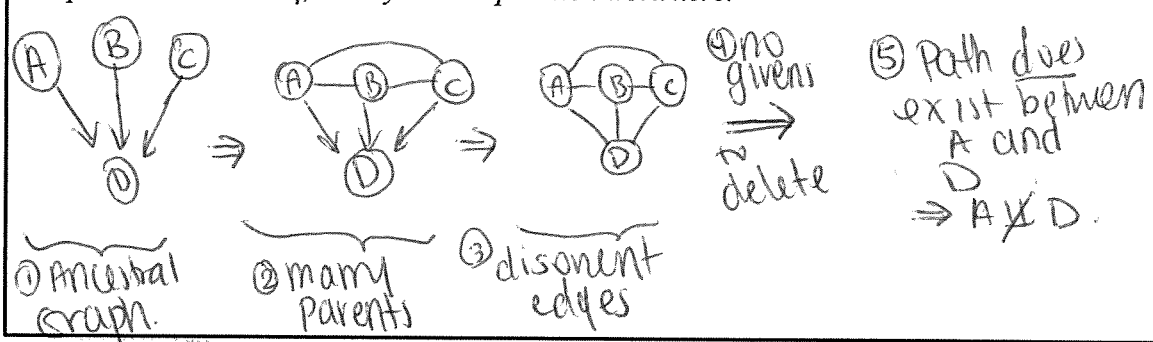 A B C
D
⇒
A B C
D
⇒
A B C
D
④ no
givens
⇒
to
delete
⑤ Path does
exist between
A and
D
⇒ A ⫫̸ D.
① Ancestral
graph.
② marry
parents
③ disorient
edges